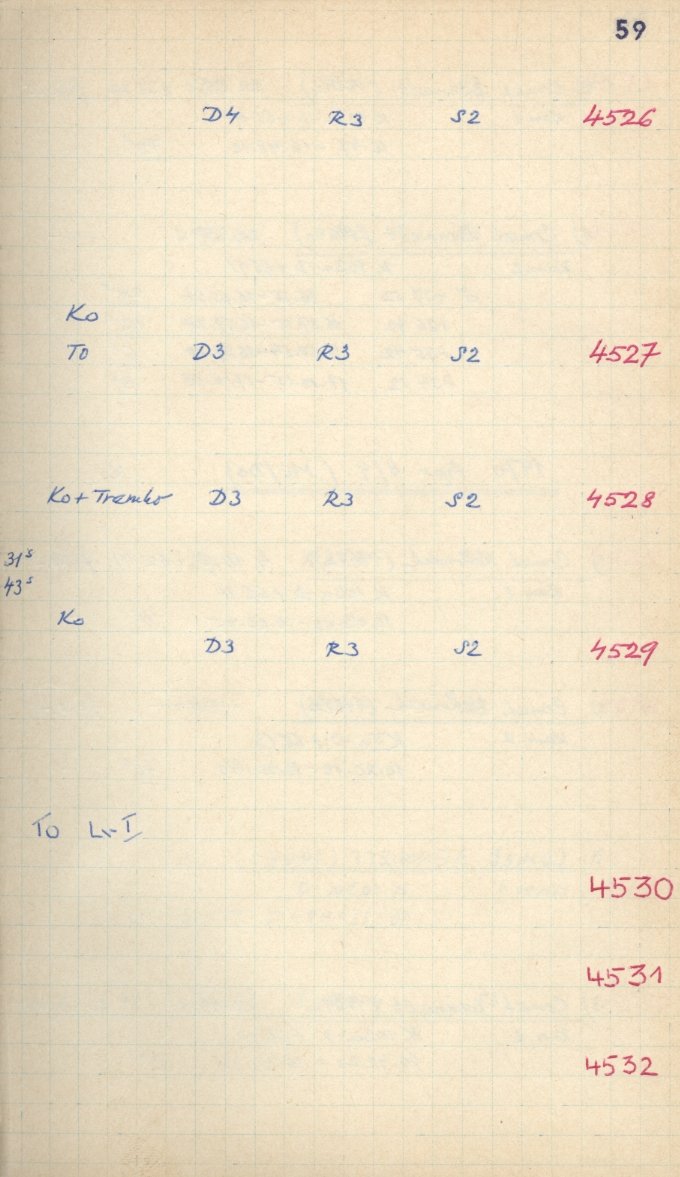 59
D4 R3 S2 4526
Ko
To D3 R3 S2 4527
Ko + Trambo D3 R3 S2 4528
31s
43s
Ko
D3 R3 S2 4529
To
4530
4531
4532